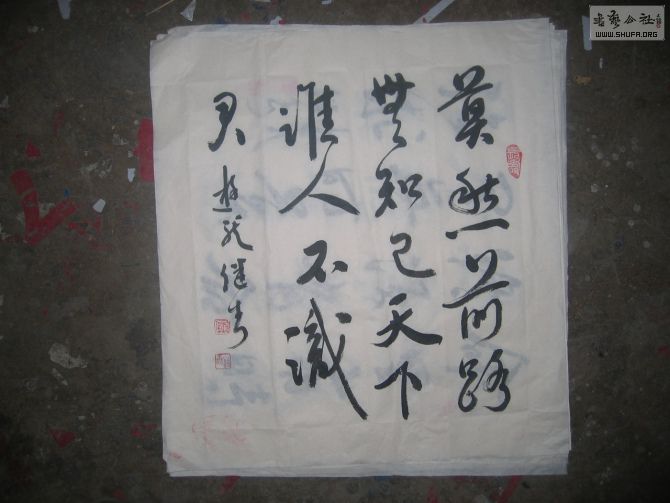 莫愁前路
無知己天下
誰人不識
君
书艺公社
WWW.SHUFA.ORG